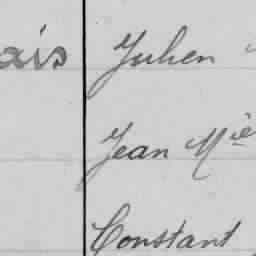 ais Julien
Jean Mie
Constant